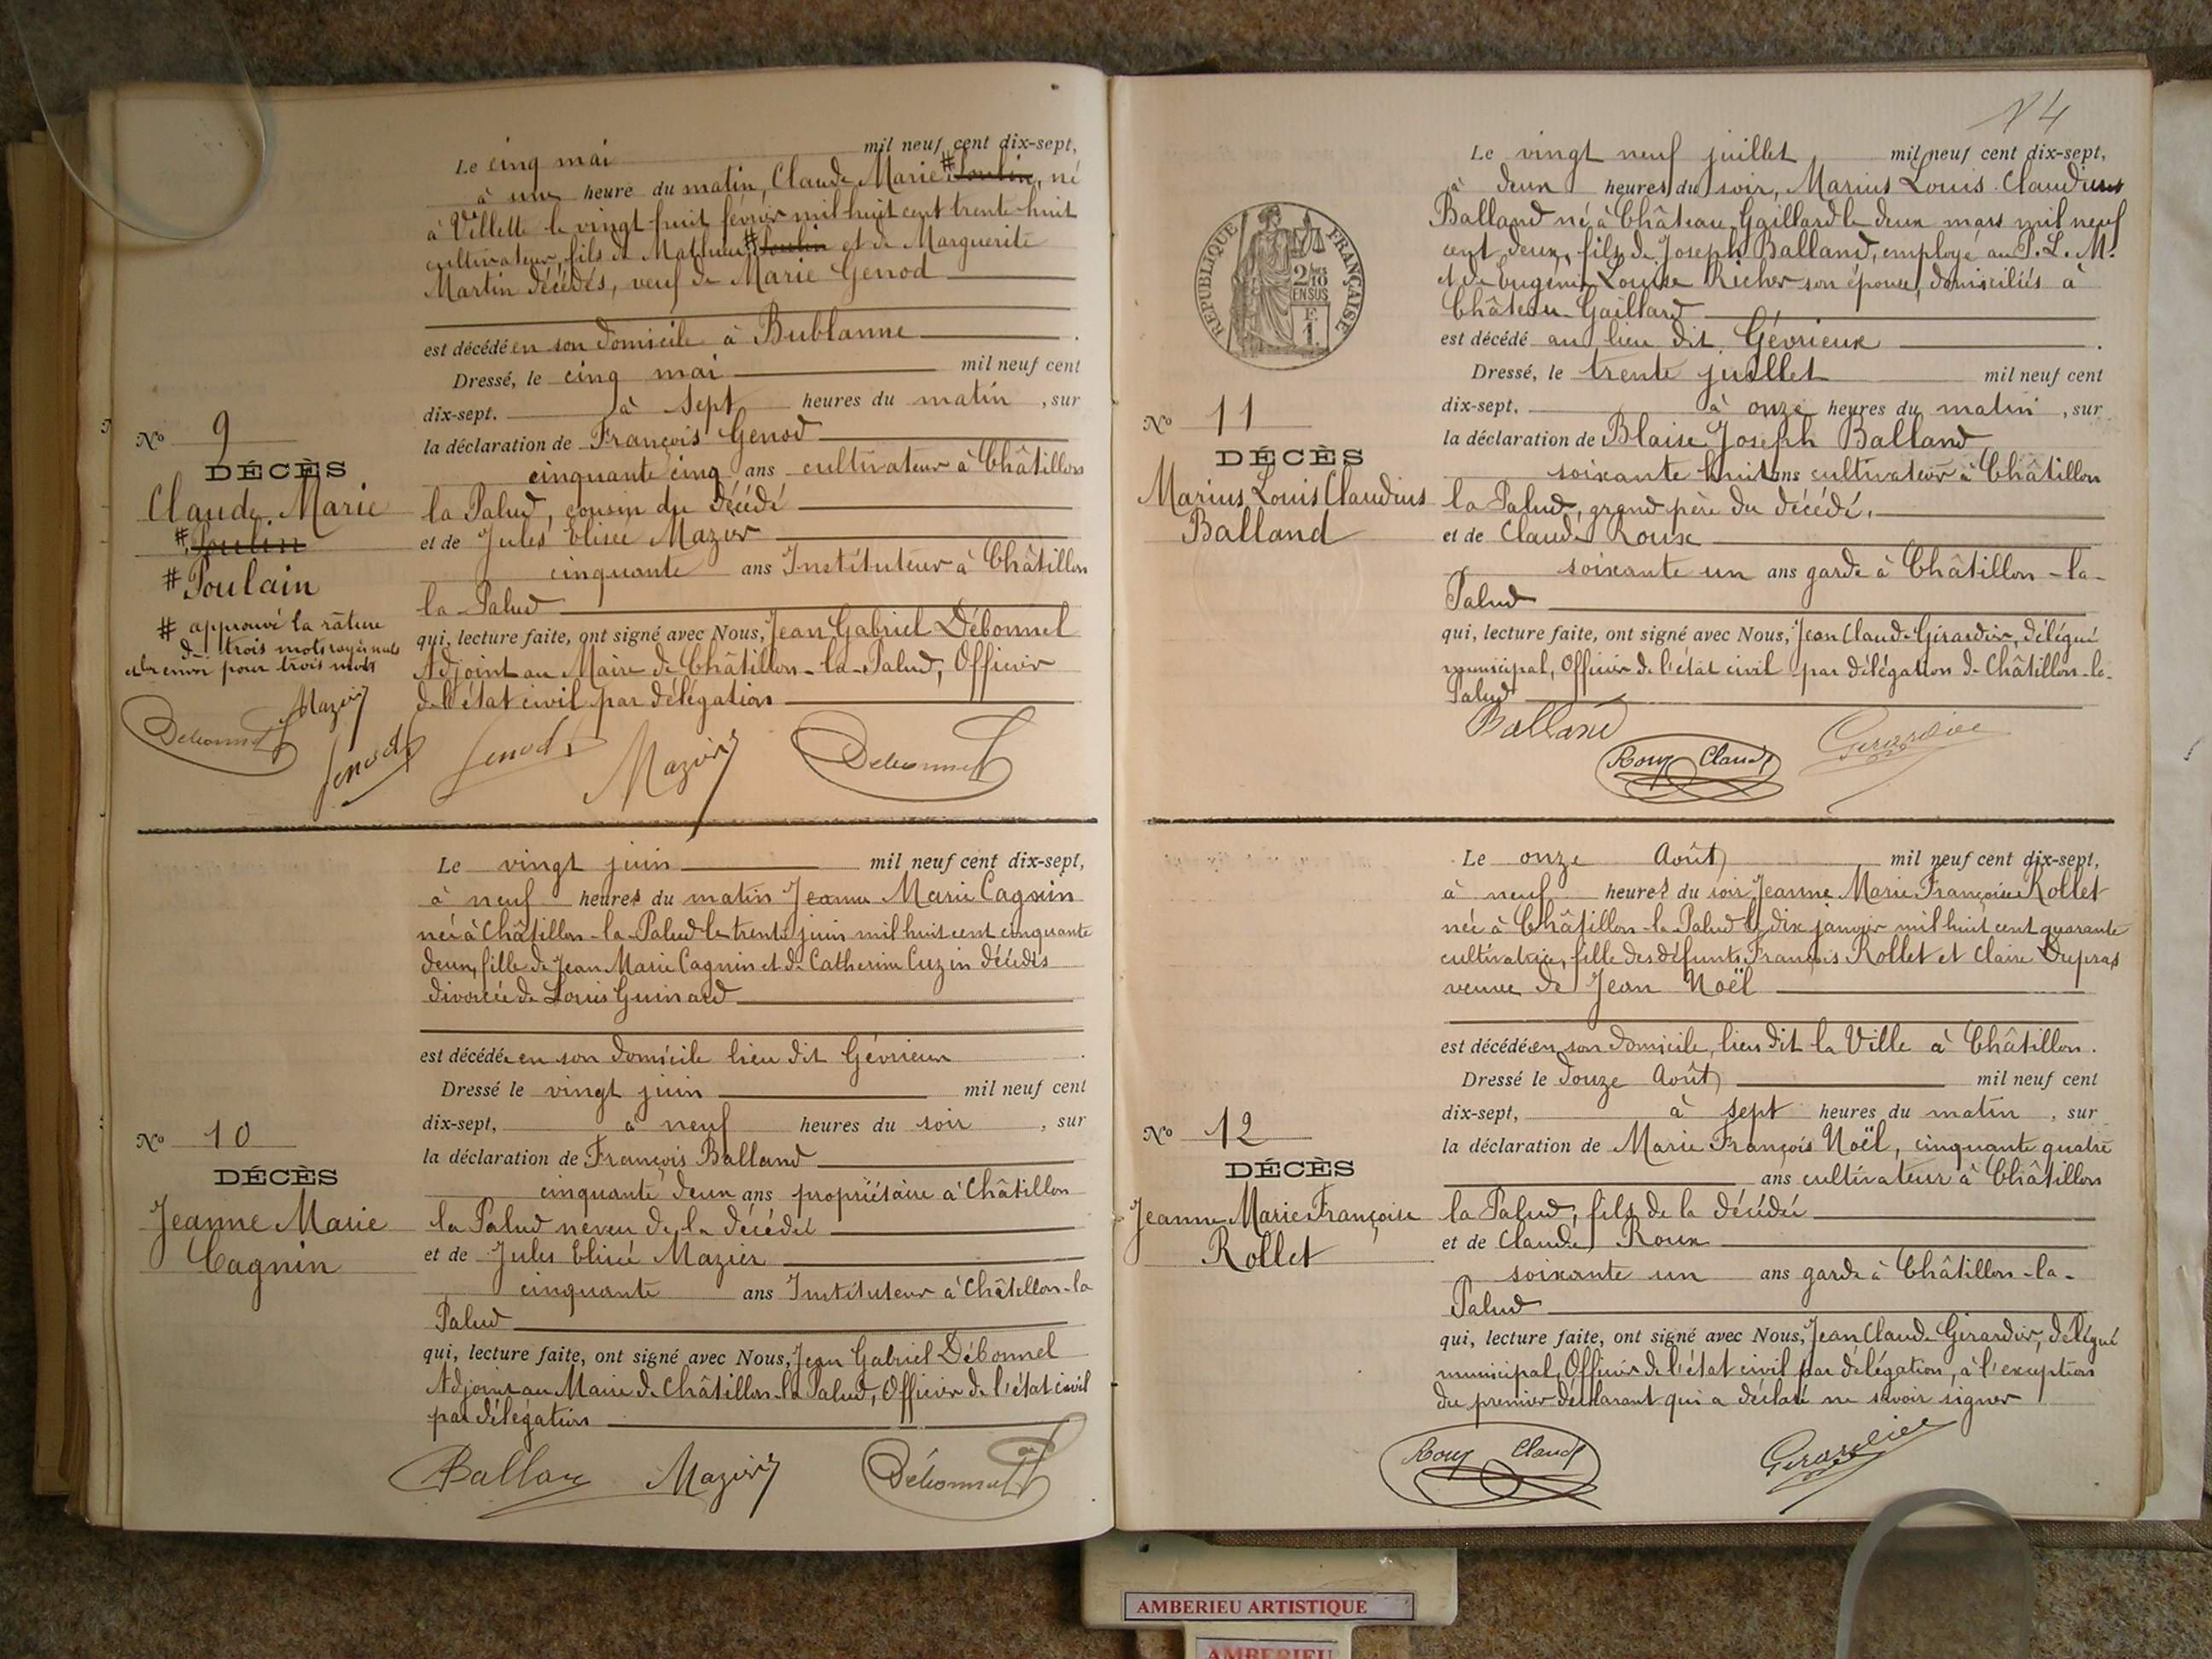 Le cinq mai mil neuf cent dix-sept,
à une heure du matin, Claude Marie # Poulin, né
à Villette le vingt huit février mil huit cent trente-huit
cultivateur, fils de Mathieu # Poulin et de Marguerite
Martin décédés, veuf de Marie Genod
est décédé en son domicile à Bublanne.
Dressé, le cinq mai mil neuf cent
dix-sept. à sept heures du matin, sur
la déclaration de François Genod
cinquante cinq ans cultivateur à Châtillon
la Palud, cousin du décédé
et de Jules Elisée Mazer
cinquante ans Instituteur à Châtillon
la-Palud
qui, lecture faite, ont signé avec Nous, Jean Gabriel Débonnel
Adjoint au Maire de Châtillon-la-Palud, Officier
de l'état civil par délégation
No 9
DÉCÈS
Claude Marie
# Poulin
# Poulain
# approuvé la rature
de trois mots rayés nuls
et renvoi pour trois mots
Mazier
Debonnel Genod Genod Mazier Debonnel
Le vingt juin mil neuf cent dix-sept,
à neuf heures du matin Jeanne Marie Cagnin
née à Châtillon-la-Palud le trente juin mil huit cent cinquante
deux, fille de Jean Marie Cagnin et de Catherine Cuzin décédés
divorcée de Louis Guinard
est décédée en son domicile lieu dit Gévrieux.
Dressé le vingt juin mil neuf cent
dix-sept, à neuf heures du soir, sur
la déclaration de François Balland
cinquante deux ans propriétaire à Châtillon
la Palud neveu de la décédée
et de Jules Elisée Mazier
cinquante ans Instituteur à Châtillon-la
Palud
qui, lecture faite, ont signé avec Nous, Jean Gabriel Débonnel
Adjoint au Maire de Châtillon-la Palud, Officier de l'état civil
par délégation
No 10
DÉCÈS
Jeanne Marie
Cagnin
Ballan Mazier Débonnel
14
Le vingt neuf juillet mil neuf cent dix-sept,
à deux heures du soir, Marius Louis Claudius
Balland né à Château Gaillard le deux mars mil neuf
cent deux, fils de Joseph Balland, employé au P.L.M.
et de Eugénie Louise Richer son épouse, domiciliés à
Château-Gaillard
est décédé au lieu dit Gévrieux.
Dressé, le trente juillet mil neuf cent
dix-sept, à onze heures du matin, sur
la déclaration de Blaise Joseph Balland
soixante huit ans cultivateur à Châtillon
la Palud, grand père du décédé,
et de Claude Roux
soixante un ans garde à Châtillon-la-
Palud
qui, lecture faite, ont signé avec Nous, Jean Claude Girardier, délégué
municipal, Officier de l'état civil par délégation de Châtillon-la-
Palud
REPUBLIQUE FRANÇAISE
2/10
EN SUS
F.
1.
No 11
DÉCÈS
Marius Louis Claudius
Balland
Balland
Roux Claude Girardier
Le onze Août mil neuf cent dix-sept,
à neuf heures du soir Jeanne Marie Françoise Rollet
née à Châtillon-la-Palud le dix janvier mil huit cent quarante
cultivatrice, fille des défunts François Rollet et Claire Dupras
veuve de Jean Noël
est décédée en son domicile, lieu dit la Ville à Châtillon.
Dressé le douze Août mil neuf cent
dix-sept, à sept heures du matin, sur
la déclaration de Marie François Noël, cinquante quatre
ans cultivateur à Châtillon
la Palud, fils de la décédée
et de Claude Roux
soixante un ans garde à Châtillon-la-
Palud
qui, lecture faite, ont signé avec Nous, Jean Claude Girardier, délégué
municipal, Officier de l'état civil par délégation, à l'exception
du premier déclarant qui a déclaré ne savoir signer
No 12
DÉCÈS
Jeanne Marie Françoise
Rollet
Roux Claude Girardier
AMBERIEU ARTISTIQUE
AMBERIEU